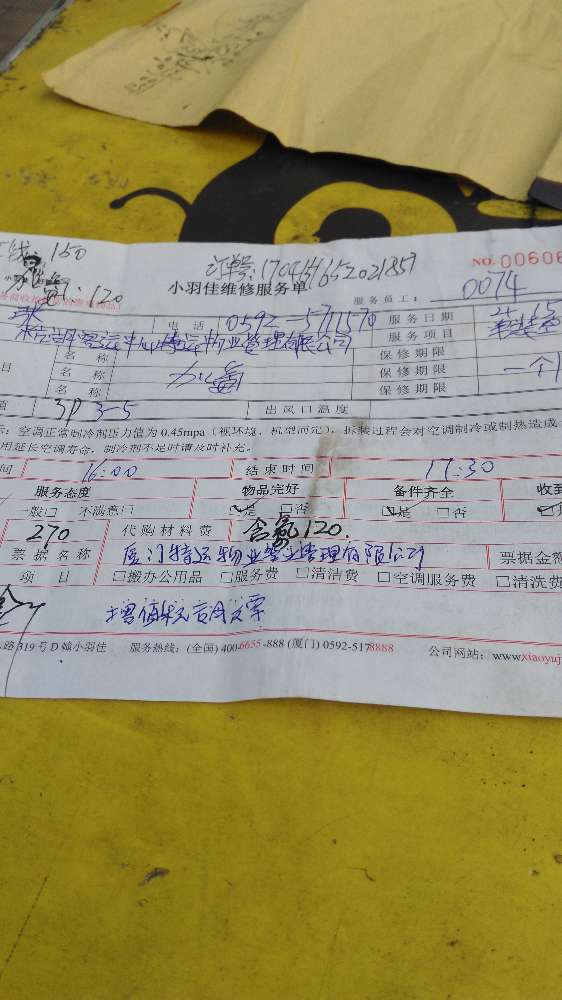 线：150
订单号：1704151652021857
NO. 00606
加氟：120
小羽佳维修服务单
服务员工：0074
电话 0592-5711570 服务日期
客运中心海运物业管理有限公司 服务项目
名称 保修期限
目 名称 加氟 保修期限 一个
名称 保修期限
值 3P 3-5 出风口温度
空调正常制冷剂压力值为0.45mpa（视环境、机型而定），拆装过程会对空调制冷或制热造成
用延长空调寿命，制冷剂不足时请及时补充。
间 16:00 结束时间 17:30
服务态度 物品完好 备件齐全 收到
一般□ 不满意□ ☑是 □否 ☑是 □否
270 代购材料费 含氟120.
票据名称 厦门特运物业管理有限公司 票据金额
项目 □搬办公用品 □服务费 □清洁费 □空调服务费 □清洗费
增值税专用发票
路319号D幢小羽佳 服务热线：(全国) 400-6655-888 (厦门) 0592-5178888 公司网站：www.xiaoyuj